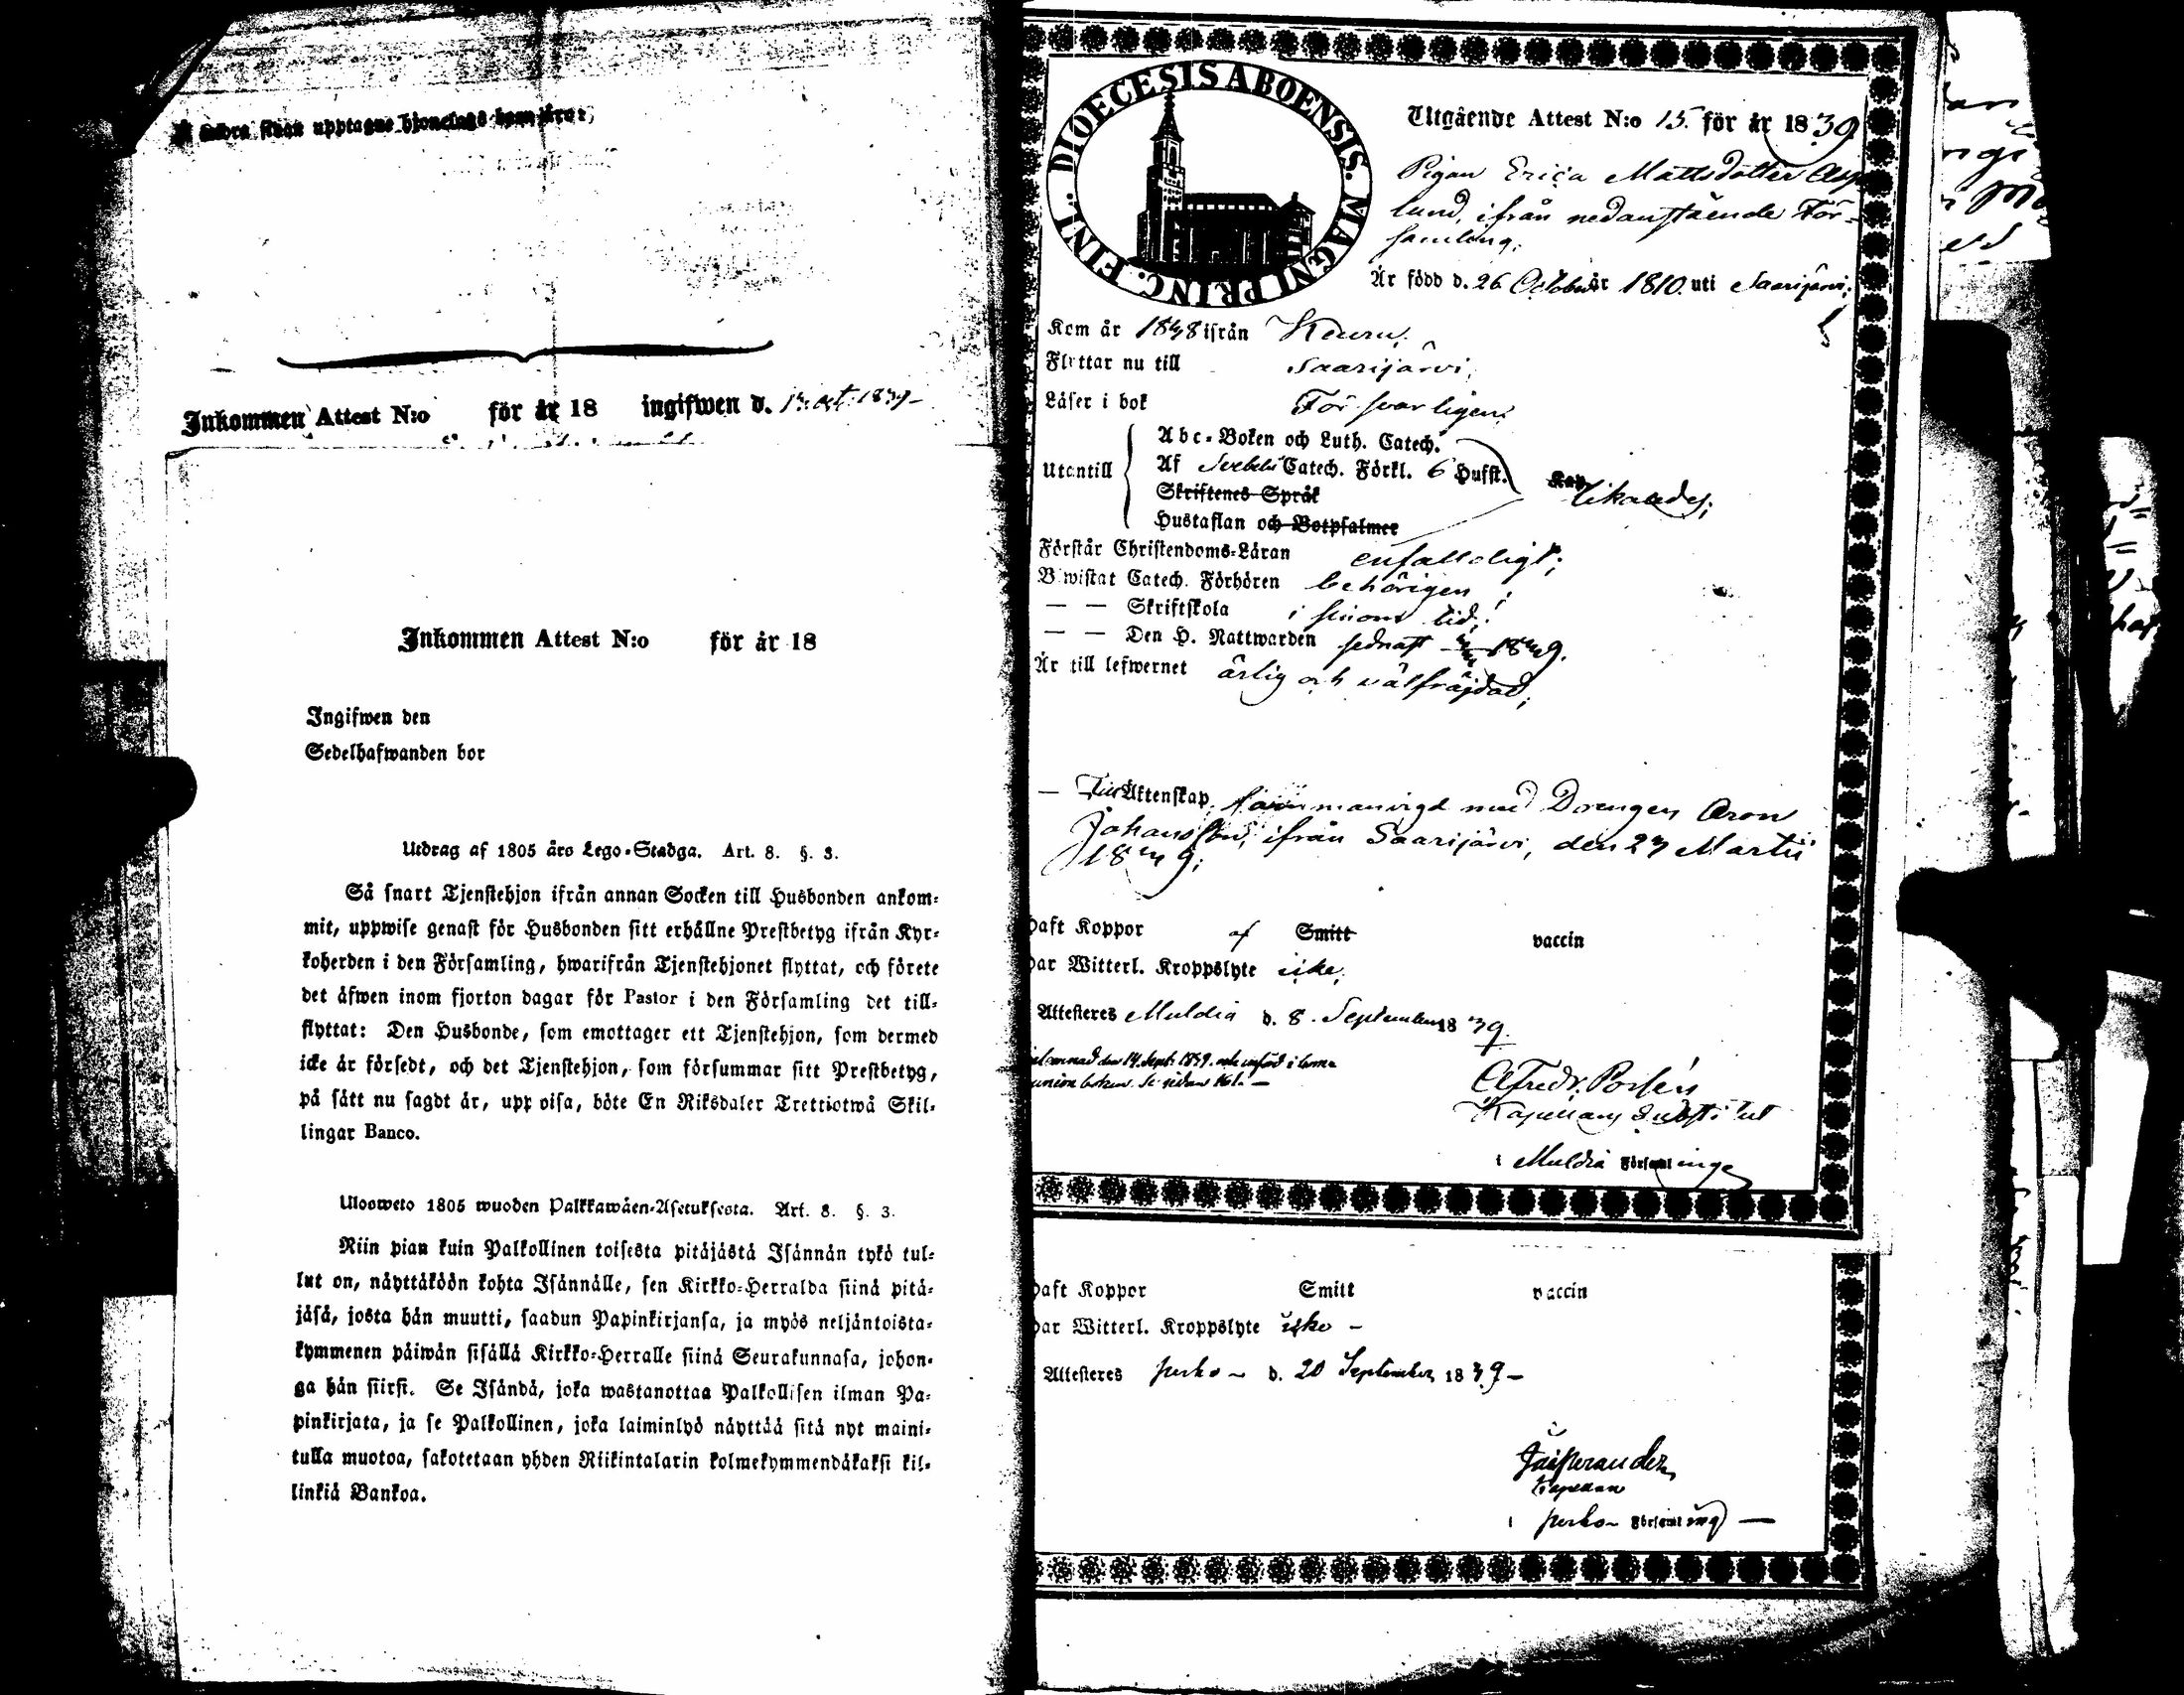 upptagne hjonelags
Inkommen Attest N:o för år 18 ingifwen d. 13. oct. 1839 –
Inkommen Attest N:o för år 18
Ingifwen den
Sedelhafwanden bor
Utdrag af 1805 års Lego-Stadga. Art. 8. §. 3.
Så snart Tjenstehjon ifrån annan Socken till Husbonden ankom-
mit, uppwise genast för Husbonden sitt erhållne Prestbetyg ifrån Kyr-
koherden i den Församling, hwarifrån Tjenstehjonet flyttat, och förete
det äfwen inom fjorton dagar för Pastor i den Församling det till-
flyttat: Den Husbonde, som emottager ett Tjenstehjon, som dermed
icke är försedt, och det Tjenstehjon, som försummar sitt Prestbetyg,
på sätt nu sagdt är, upp visa, böte En Riksdaler Trettiotwå Skil-
lingar Banco.
Ulosweto 1805 wuoden Palkkawäen-Asetuksesta. Art. 8. §. 3.
Niin pian kuin Palkollinen toisesta pitäjästä Isännän tykö tul-
lut on, näyttäköön kohta Isännälle, sen Kirkko-Herralda siinä pitä-
jäsä, josta hän muutti, saadun Papinkirjansa, ja myös neljäntoista-
kymmenen päiwän sisällä Kirkko-Herralle siinä Seurakunnasa, johon-
ga hän siirsi. Se Isändä, joka wastanottaa Palkollisen ilman Pa-
pinkirjata, ja se Palkollinen, joka laiminlyö näyttää sitä nyt maini-
tulla muotoa, sakotetaan yhden Riikintalarin kolmekymmendäkaksi kil-
linkiä Bankoa.
DIOECESIS ABOENSIS. MAGNI PRINC. FINL.
Utgående Attest N:o 15. för år 1839
Pigan Erica Mattsdotter Asp
lund, ifrån nedanstående För-
samling;
Är född d. 26 October år 1810. uti Saarijärvi;
Kom år 1838 ifrån Keuru;
Flyttar nu till Saarijärvi;
Läser i bok Försvarligen;
Utantill
Abc-Boken och Luth. Catech.
Af Svebelii Catech. Förkl. 6 Hufst.
Skriftenes Språk
Hustaflan och Botpsalmer
Kan
likaledes;
Förstår Christendoms-Läran enfalldigt;
Biwistat Catech. Förhören behörigen;
— — Skriftskola i sinom tid;
— — Den H. Nattwarden sednast 1839.
Är till lefwernet ärlig och välfräjdad;
— Till Äktenskap sammanvigd med Drengen Aron
Johansson, ifrån Saarijärvi, den 23 Martii
1839;
Haft Koppor af Smitt vaccin
Har Witterl. Kroppslyte icke;
Attesteres Muldia d. 8. September 1839
den 14. Sept. 1839. och införd i
boken. Se sidan 161. —
A Fredr. Porsén
Kapellans Substitut
i Muldia Församlinge
Haft Koppor Smitt vaccin
Har Witterl. Kroppslyte icke –
Attesteres perho – d. 20 September 1839 –
Kapellan
i perho – Församling —